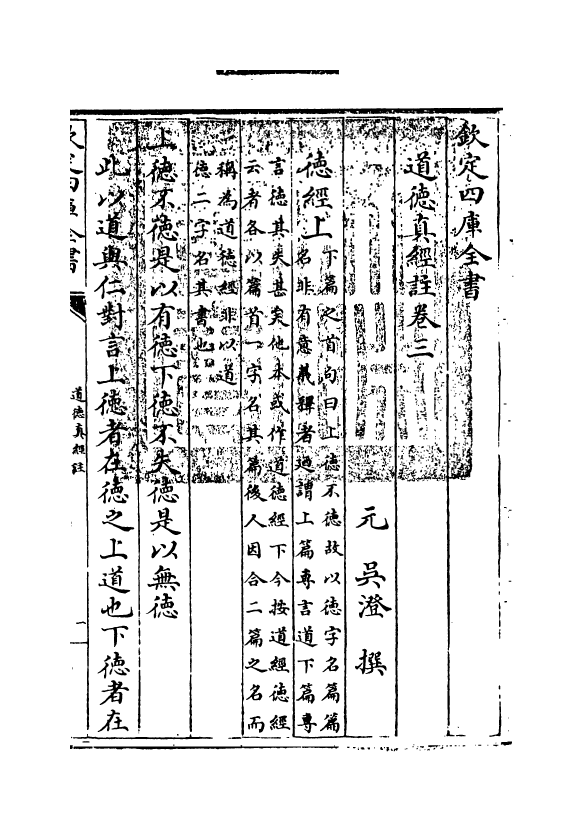 欽定四庫全書
道德真經註卷三
元 吳澄 撰
德經上
下篇之首句曰上德不德故以德字名篇篇
名非有意義釋者迺謂上篇專言道下篇專
言德其失甚矣他本或作道德經下今按道經德經
云者各以篇首一字名其篇後人因合二篇之名而
稱為道德經非以道
德二字名其書也
上德不德是以有德下德不失德是以無德
此以道與仁對言上德者在德之上道也下德者在
欽定四庫全書
道德真經註
一